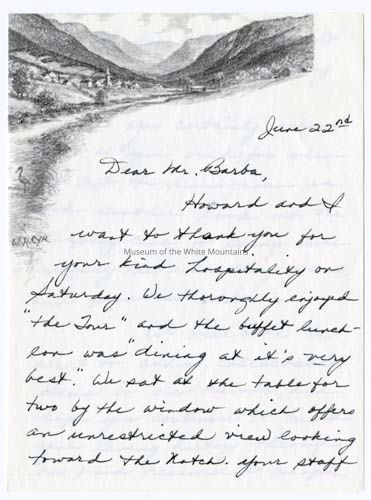 June 22nd
Dear Mr. Barba,
Howard and I
want to thank you for
your kind hospitality on
Museum of the White Mountains
Saturday. We thoroughly enjoyed
"the Tour" and the buffet lunch-
eon was "dining at it's very
best." We sat at the table for
two by the window which offers
an unrestricted view looking
toward the Notch. Your staff